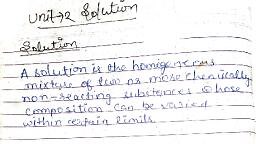 Unit→2 Solution
Solution
A solution is the homogeneous
mixture of two or more chemically
non-reacting substances whose
composition can be varied
within certain limits.